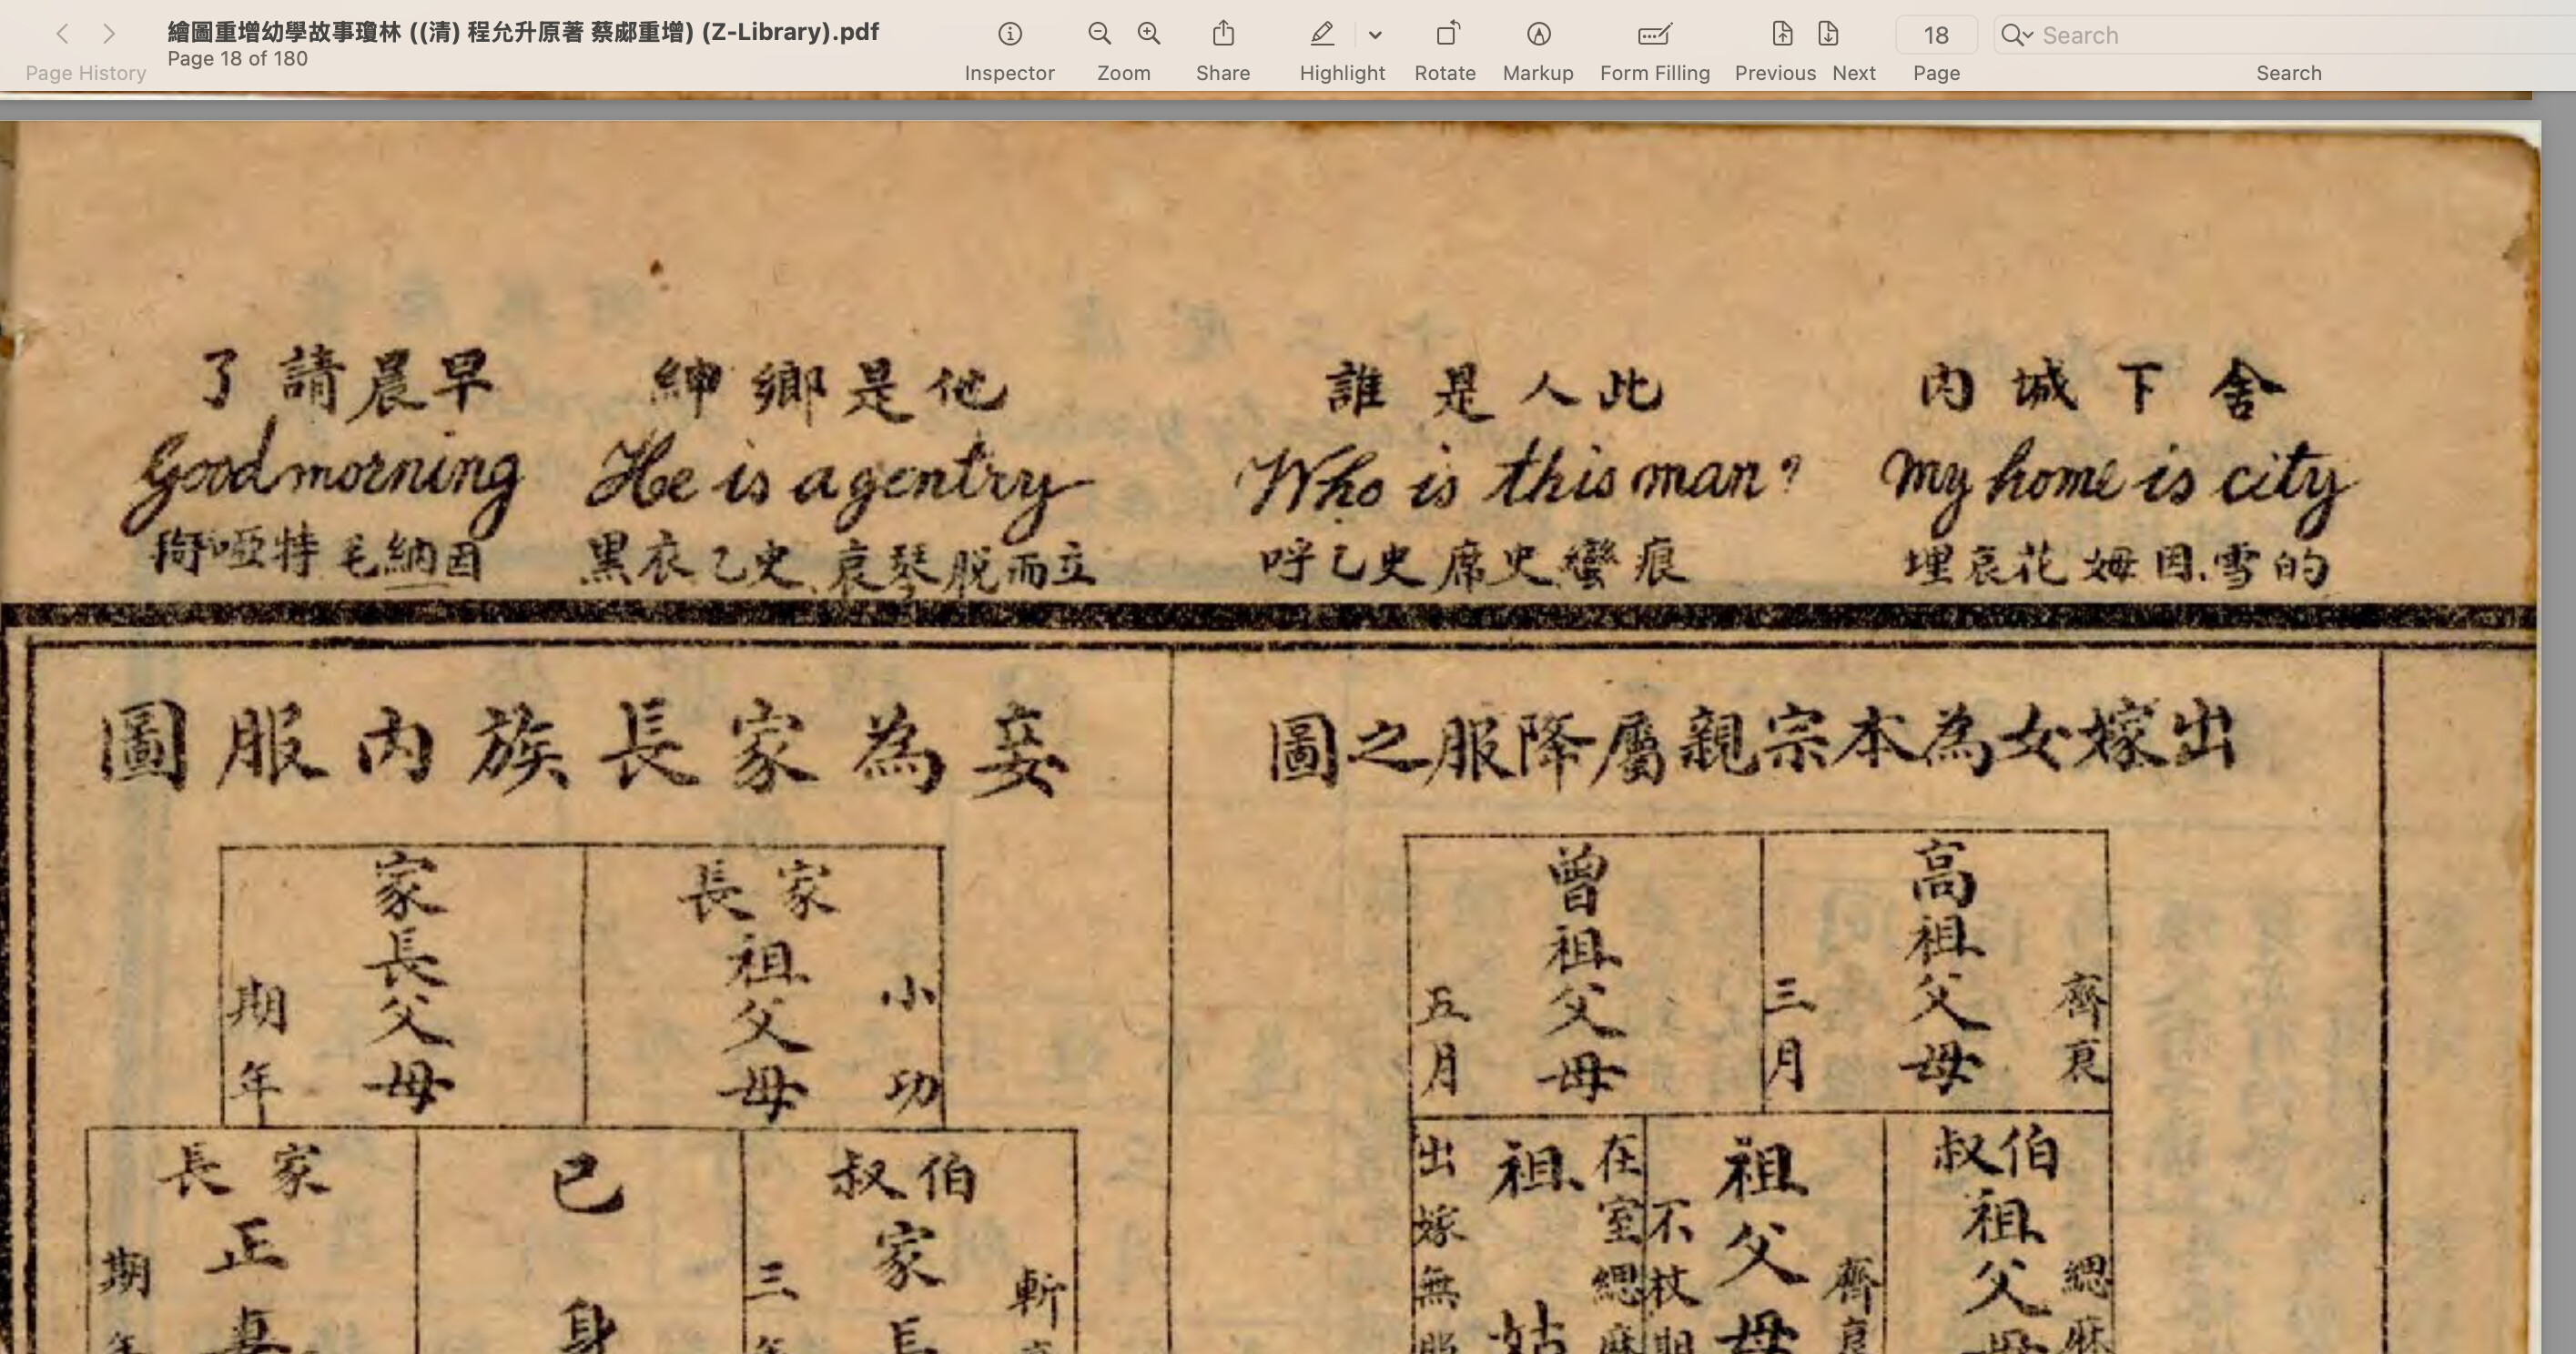 繪圖重增幼學故事瓊林 ((清) 程允升原著 蔡郕重增) (Z-Library).pdf
Page 18 of 180
Page History
Inspector
Zoom
Share
Highlight
Rotate
Markup
Form Filling
Previous
Next
18
Page
Search
Search
舍下城內
My home is city
埋哀花姆因.雪的
此人是誰
Who is this man?
呼乙史席史蠻痕
他是鄉紳
He is a gentry
黑衣乙史哀琴脱而立
早晨請了
Good morning
啞特毛納因
出嫁女為本宗親屬降服之圖
高祖父母
齊衰
三月
曾祖父母
五月
伯叔祖父
緦麻
祖父母
齊衰
不杖期
祖姑
在室緦麻
出嫁無服
妾為家長族内服圖
家長祖父母
小功
家長父母
期年
伯叔家長
斬
三年
已身
家長正妻
期年